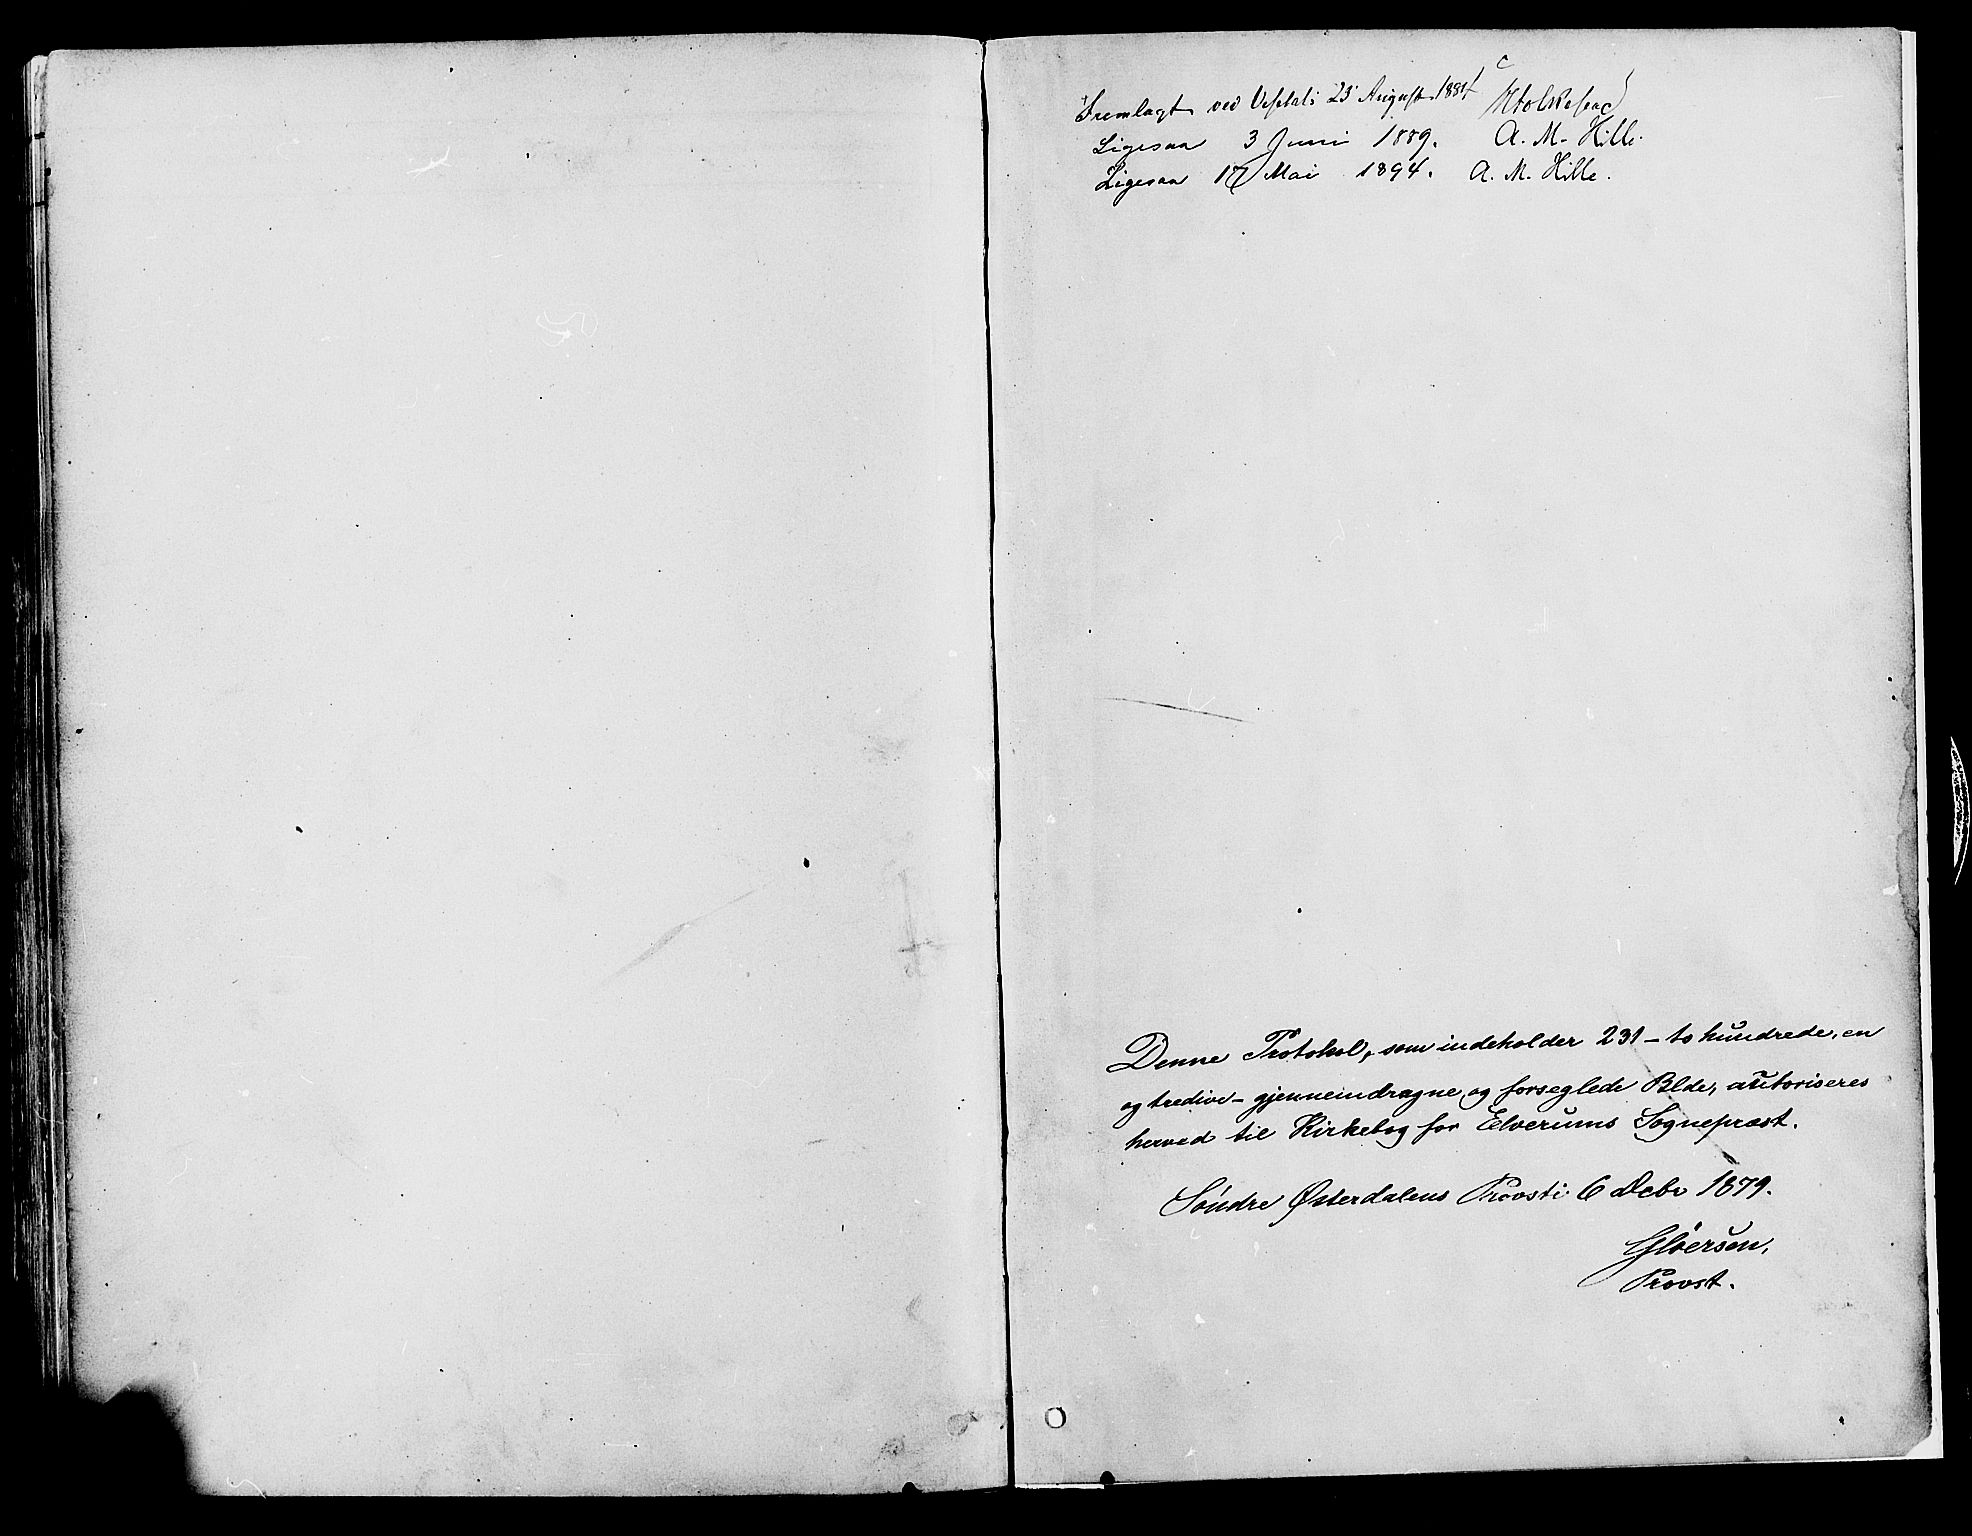 Fremlagt ved Visitats 23 August 1884
Ligesaa 3 Juni 1889. A. M. Hille.
Ligesaa 17 Mai 1894. A. M. Hille.
Denne Protokol, som indeholder 231 - to hundrede, en
og tredive - gjennemdragne og forseglede Blde, autoriseres
herved til Kirkebog for Elverums Sognepræst.
Søndre Østerdalens Provsti 6 Debr 1879.
Gløersen,
Provst.